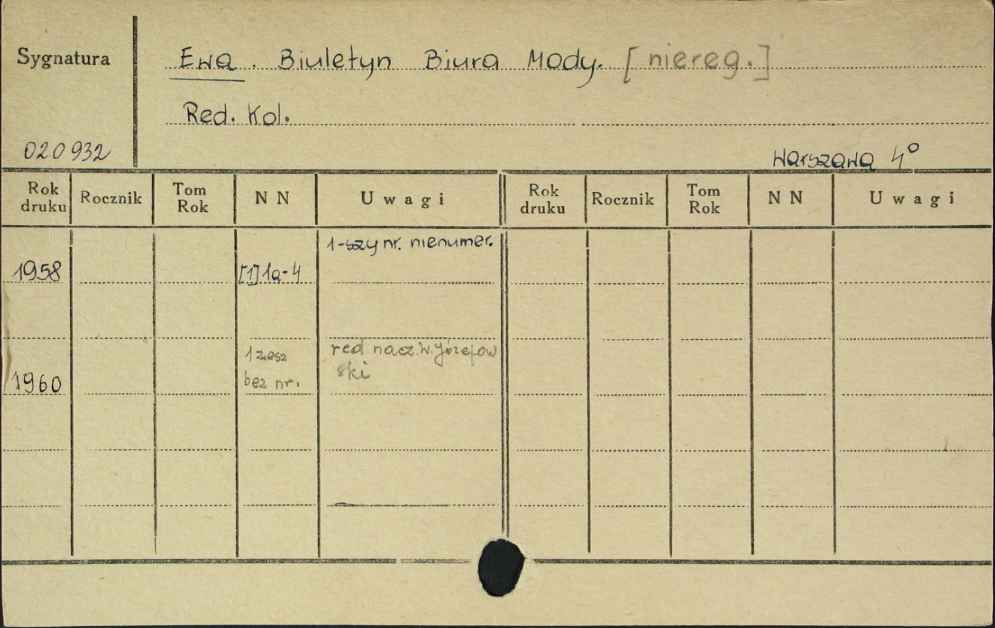 Sygnatura
Ewa. Biuletyn Biura Mody. [niereg.]
Red. Kol.
020932
Warszawa 4°
Rok druku Rocznik Tom Rok NN Uwagi Rok druku Rocznik Tom Rok NN Uwagi
1-szy nr. nienumer.
1958 [1] 1a-4
1 zesz red nacz. W. Józefow
1960 bez nr. ski